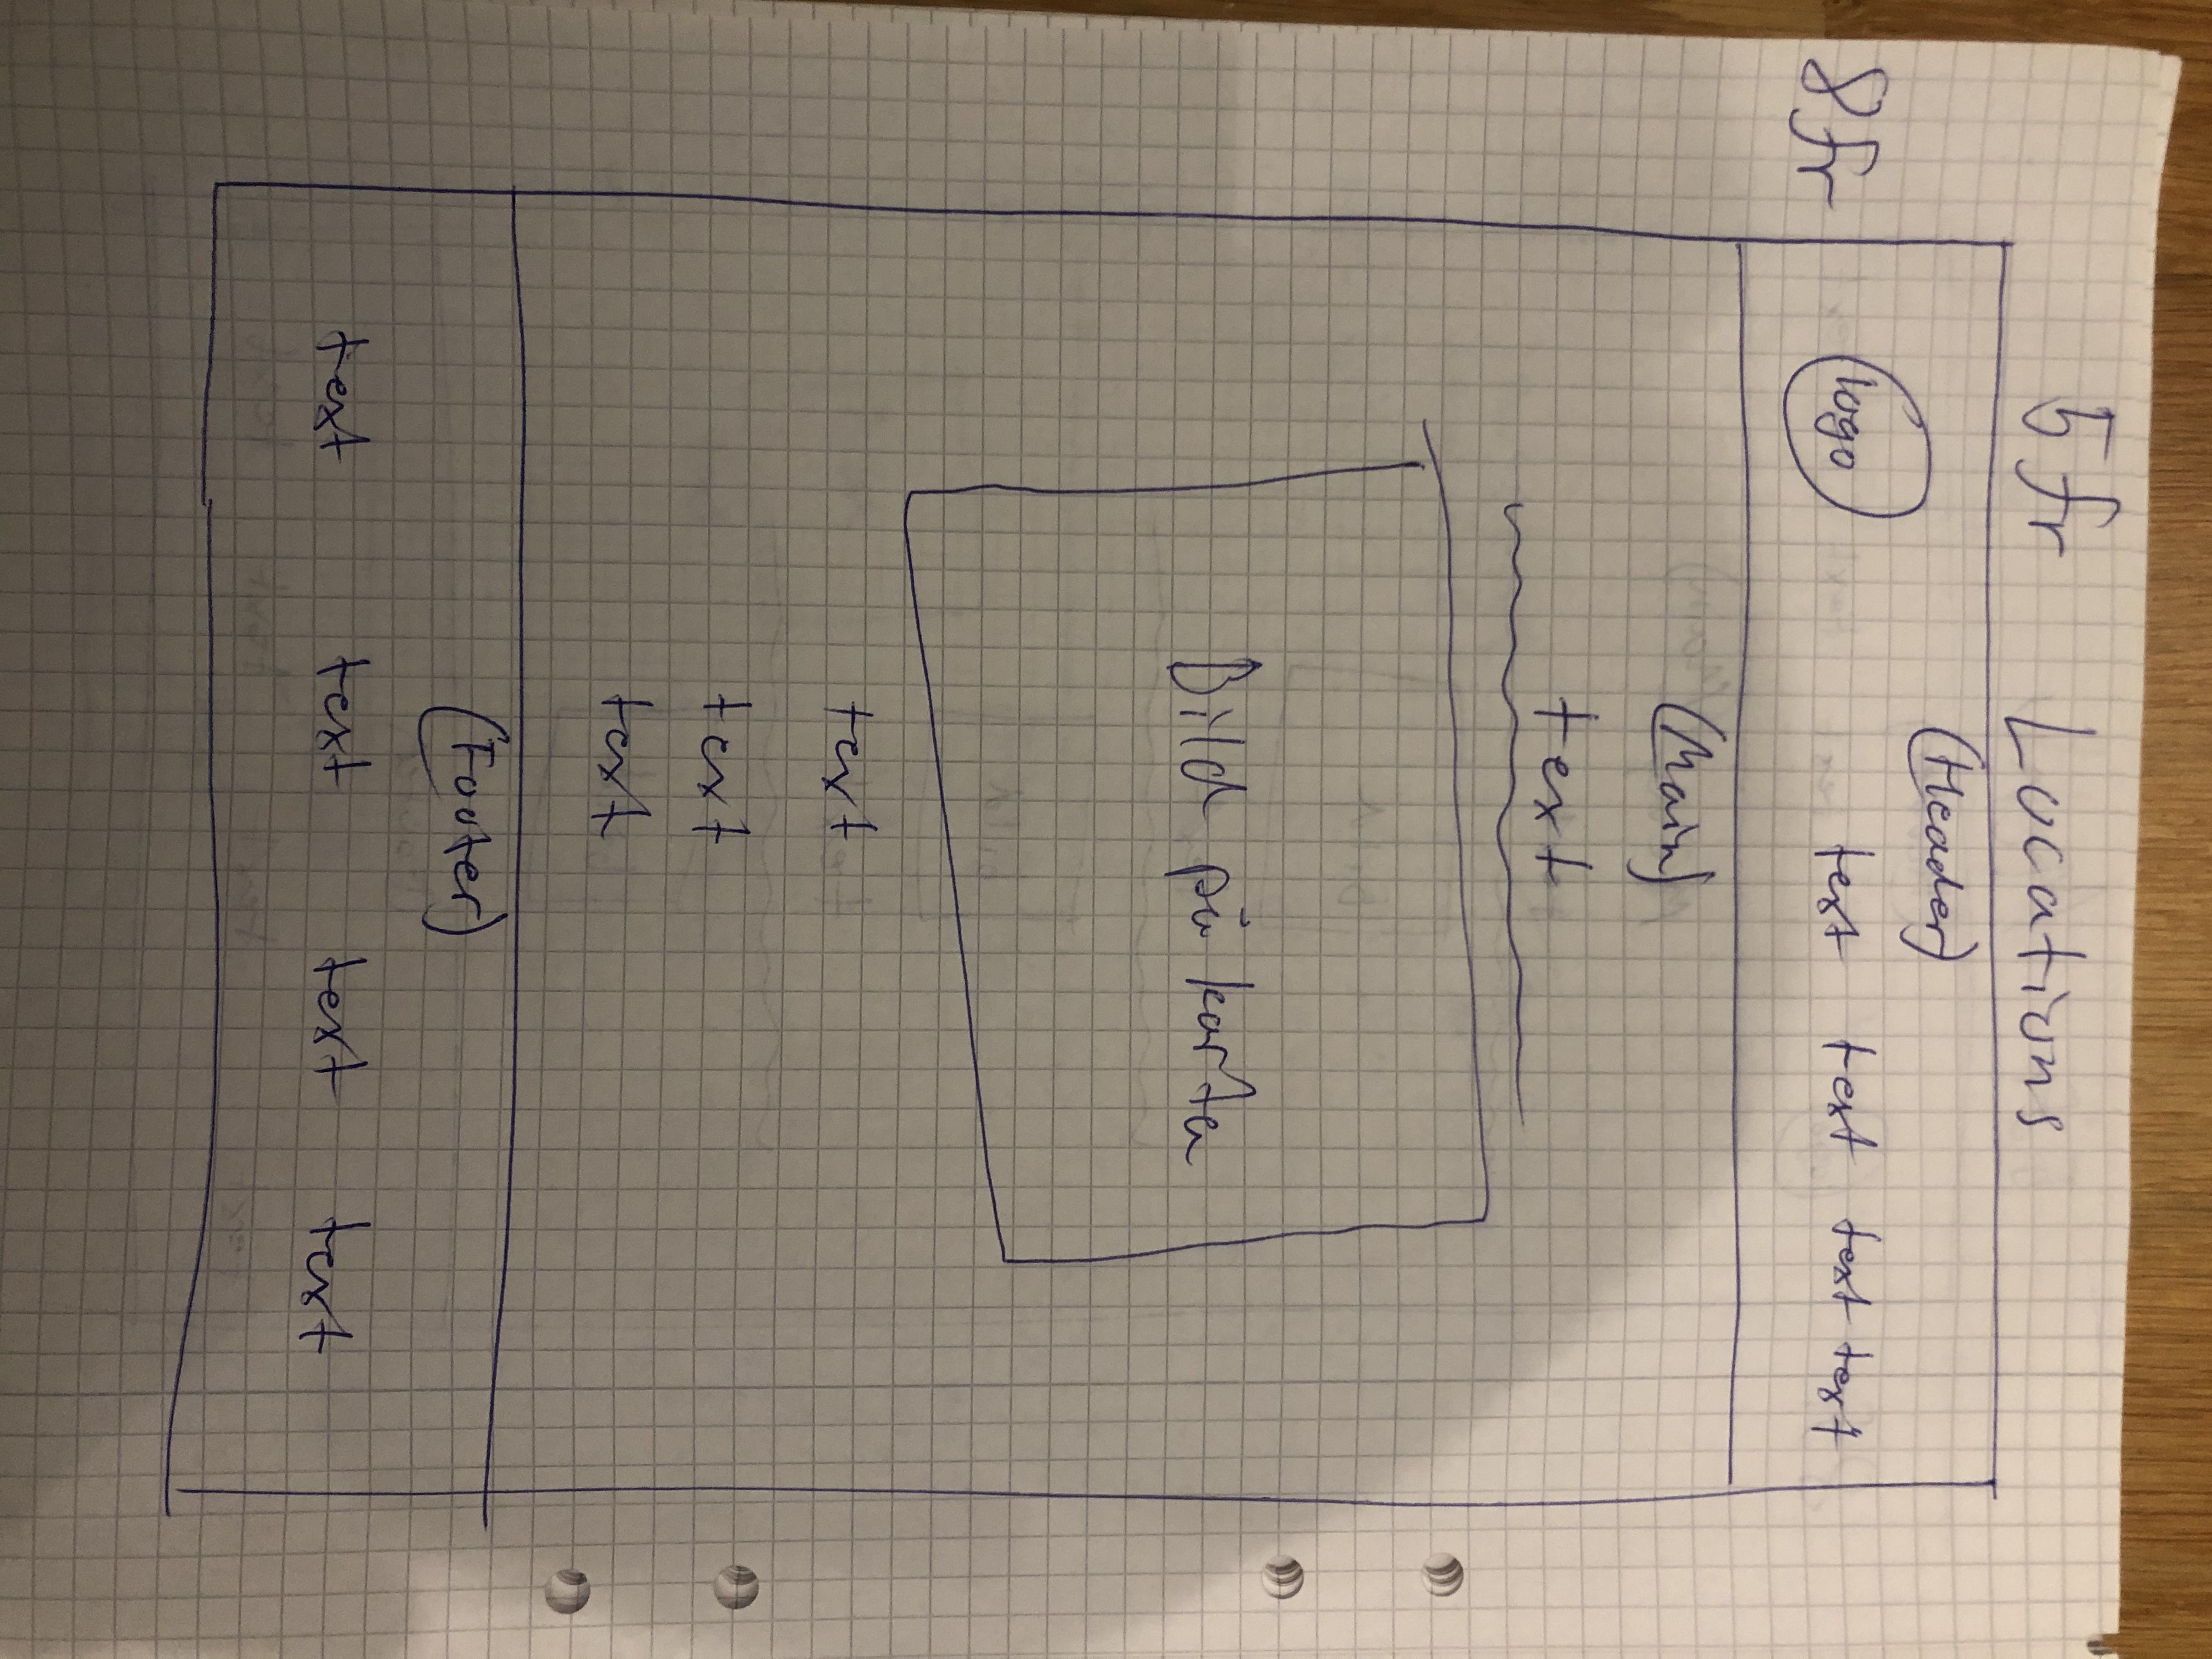 5fr Locations
8fr
(Header)
Logo text text text text
(Main)
text
Bild på karta
text
text
text
(Footer)
text text text text